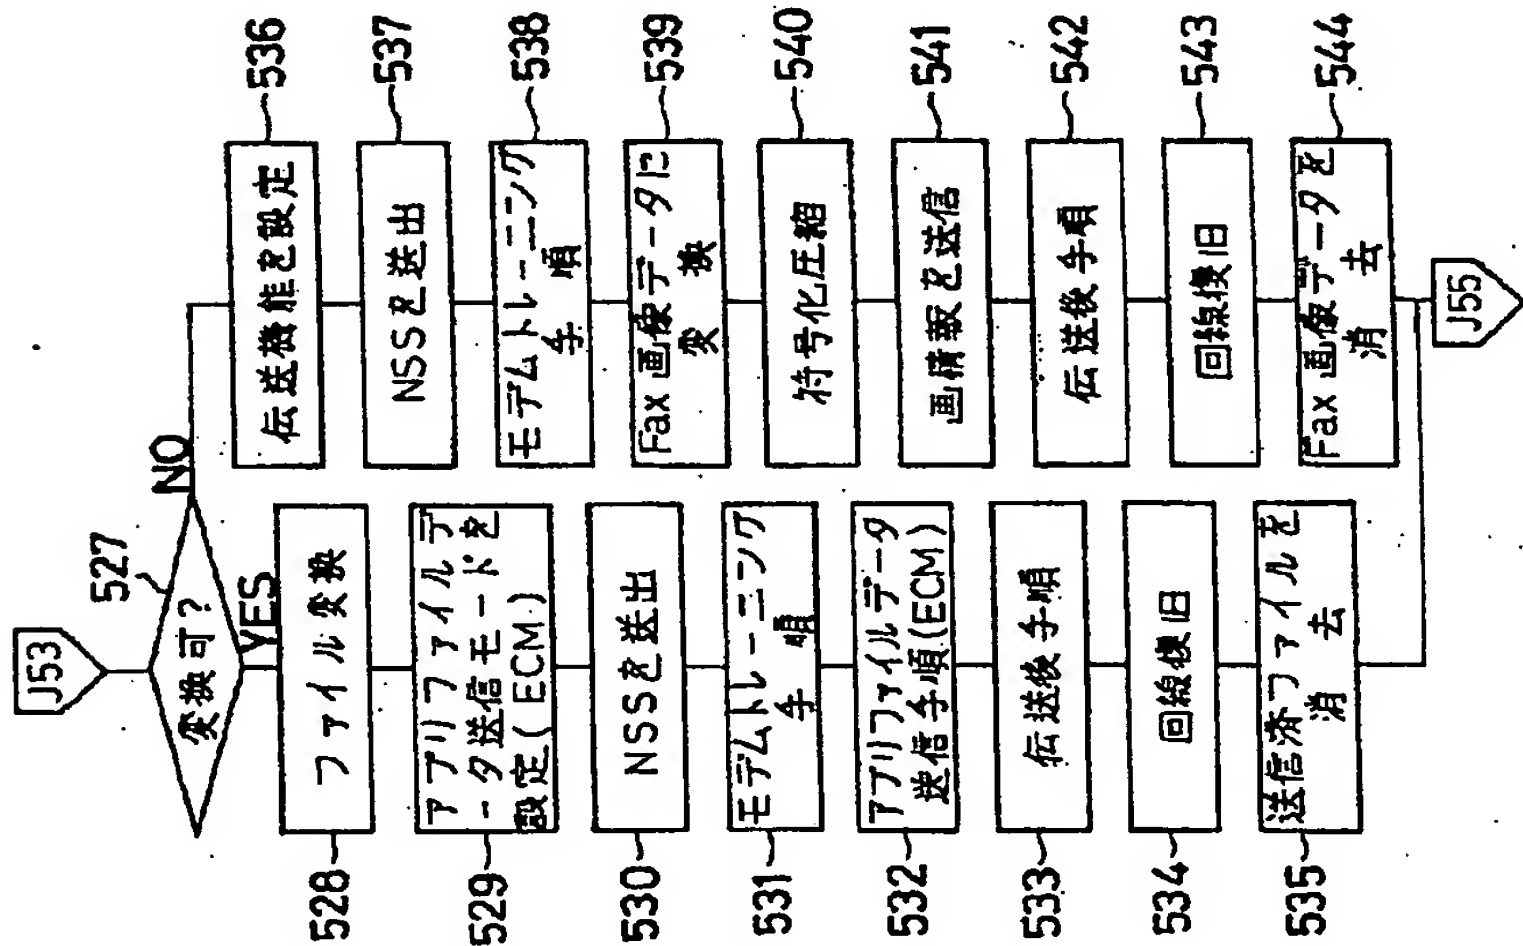 J53
527
変換可?
NO
YES
528
ファイル変換
529
アプリファイルデ
ータ送信モードを
設定(ECM)
530
NSSを送出
531
モデムトレーニング
手順
532
アプリファイルデータ
送信手順(ECM)
533
伝送後手順
534
回線復旧
535
送信済ファイルを
消去
536
伝送機能を設定
537
NSSを送出
538
モデムトレーニング
手順
539
Fax画像データに
変換
540
符号化圧縮
541
画情報を送信
542
伝送後手順
543
回線復旧
544
Fax画像データを
消去
J55